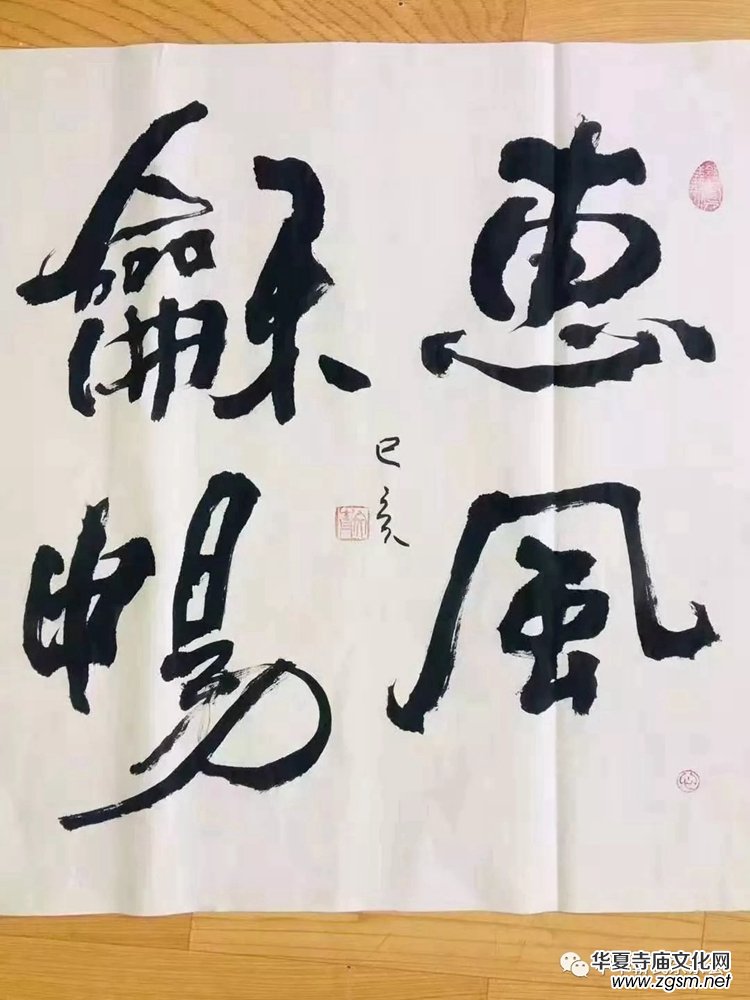 惠風
龢暢
己亥
华夏寺庙文化网
www.zgsm.net